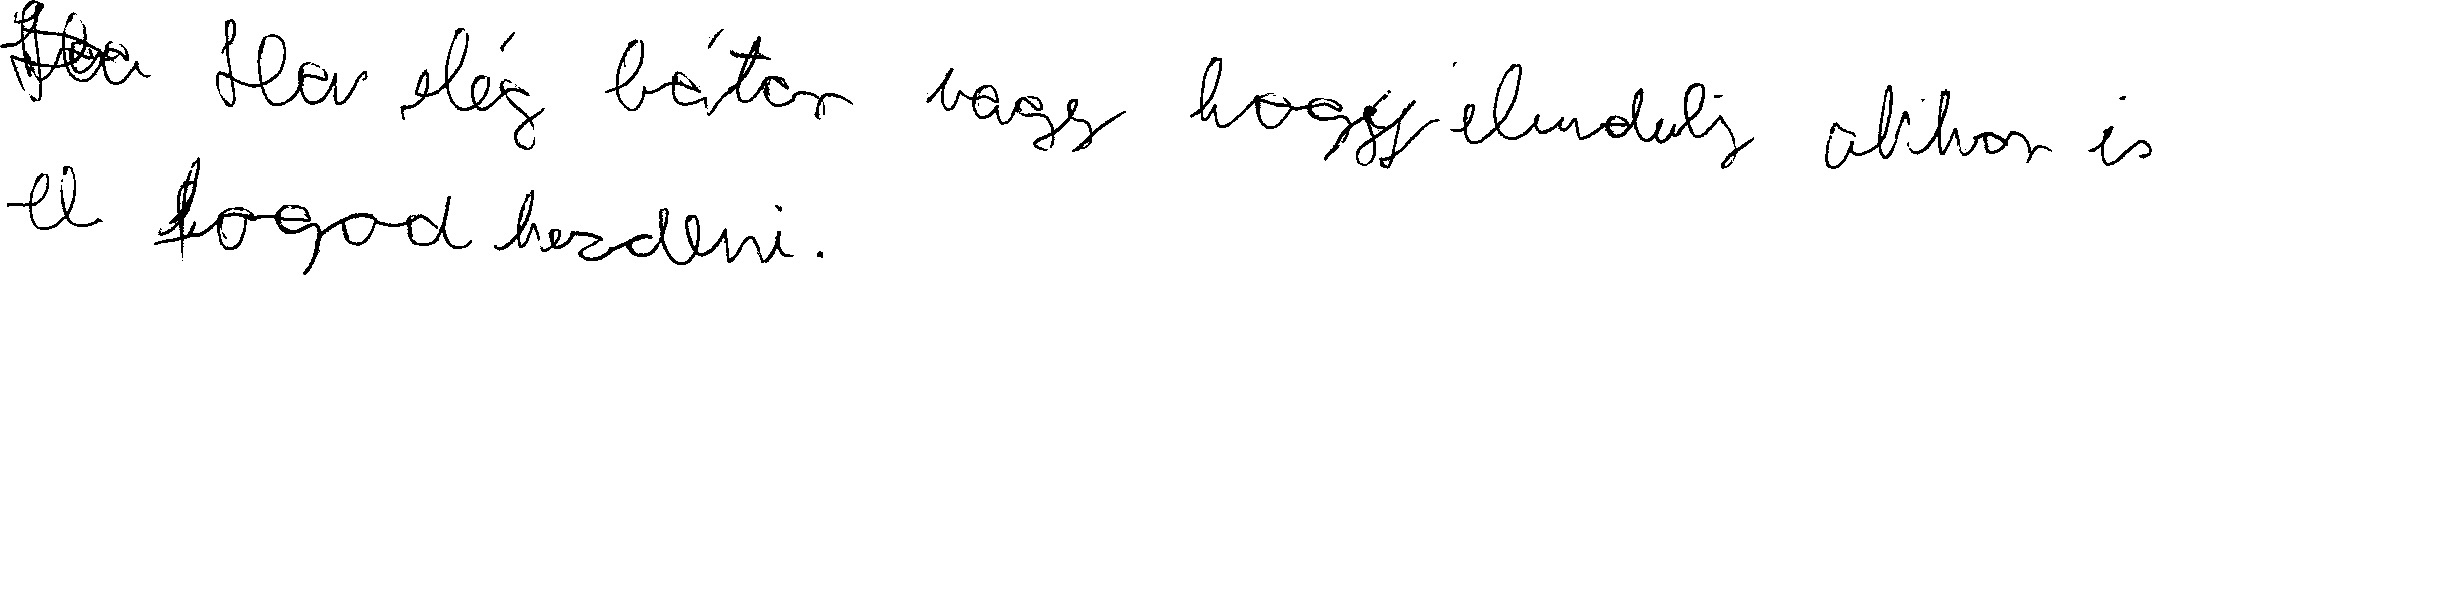 Ha elég bátor vagy hogy elindulj akkor is
el fogod kezdeni.